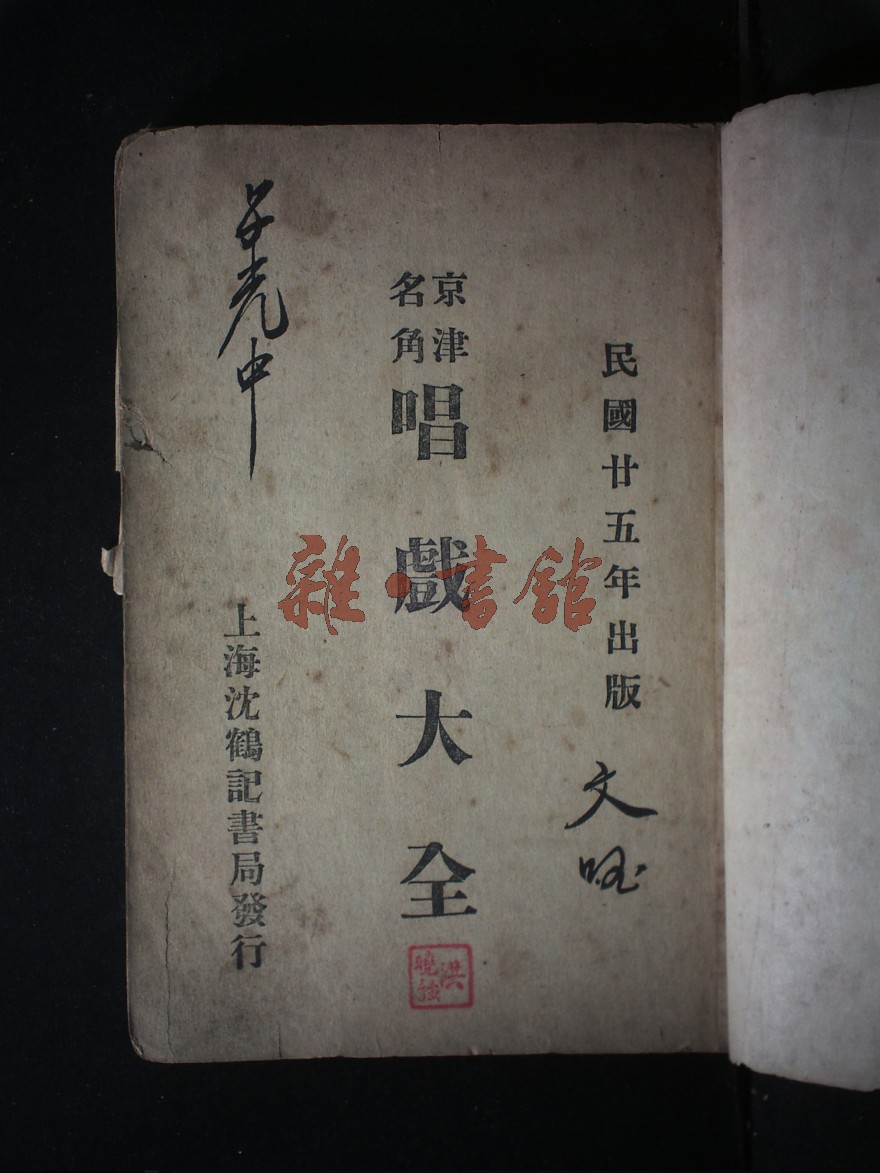 民國廿五年出版
京津
名角
唱戲大全
上海沈鶴記書局發行
雜·書館
洪